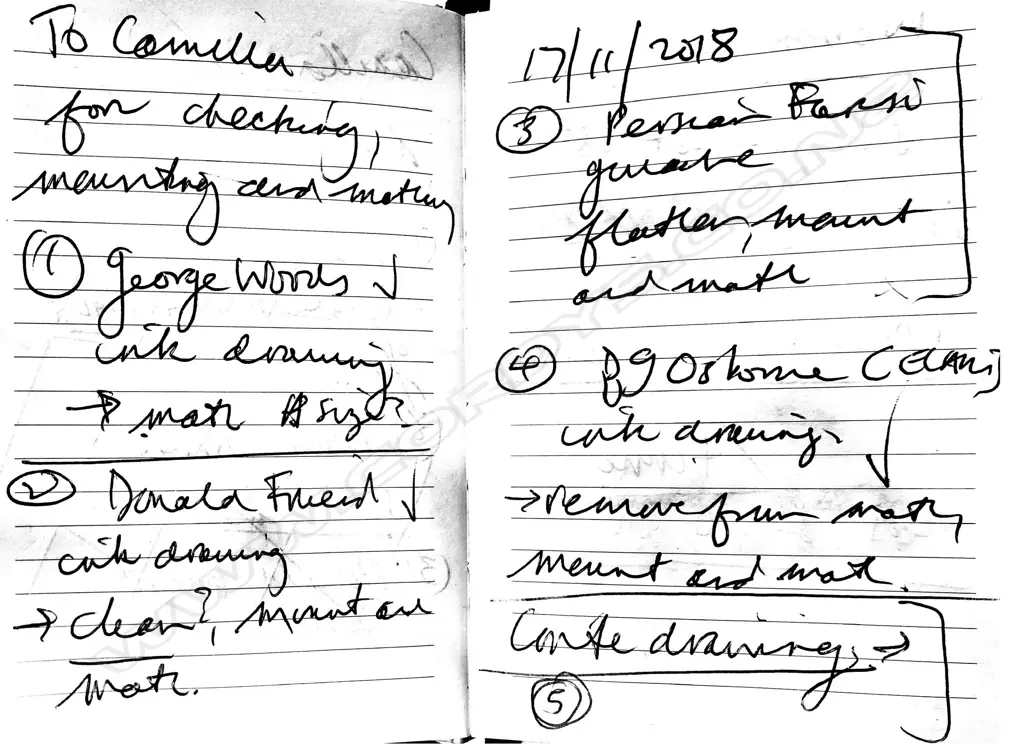 To Camilla
for checking,
mounting and mating
① George Woods ↓
ink drawing
→ mat size?
② Donald Friend ↓
ink drawing
→ clean?, mount and
mat.
17/11/2018
③ Persian Farsi
guache
flatten, mount
and mat
④ Osborne
ink drawing
→ remove from mat,
mount and mat.
Conte drawing, →
⑤